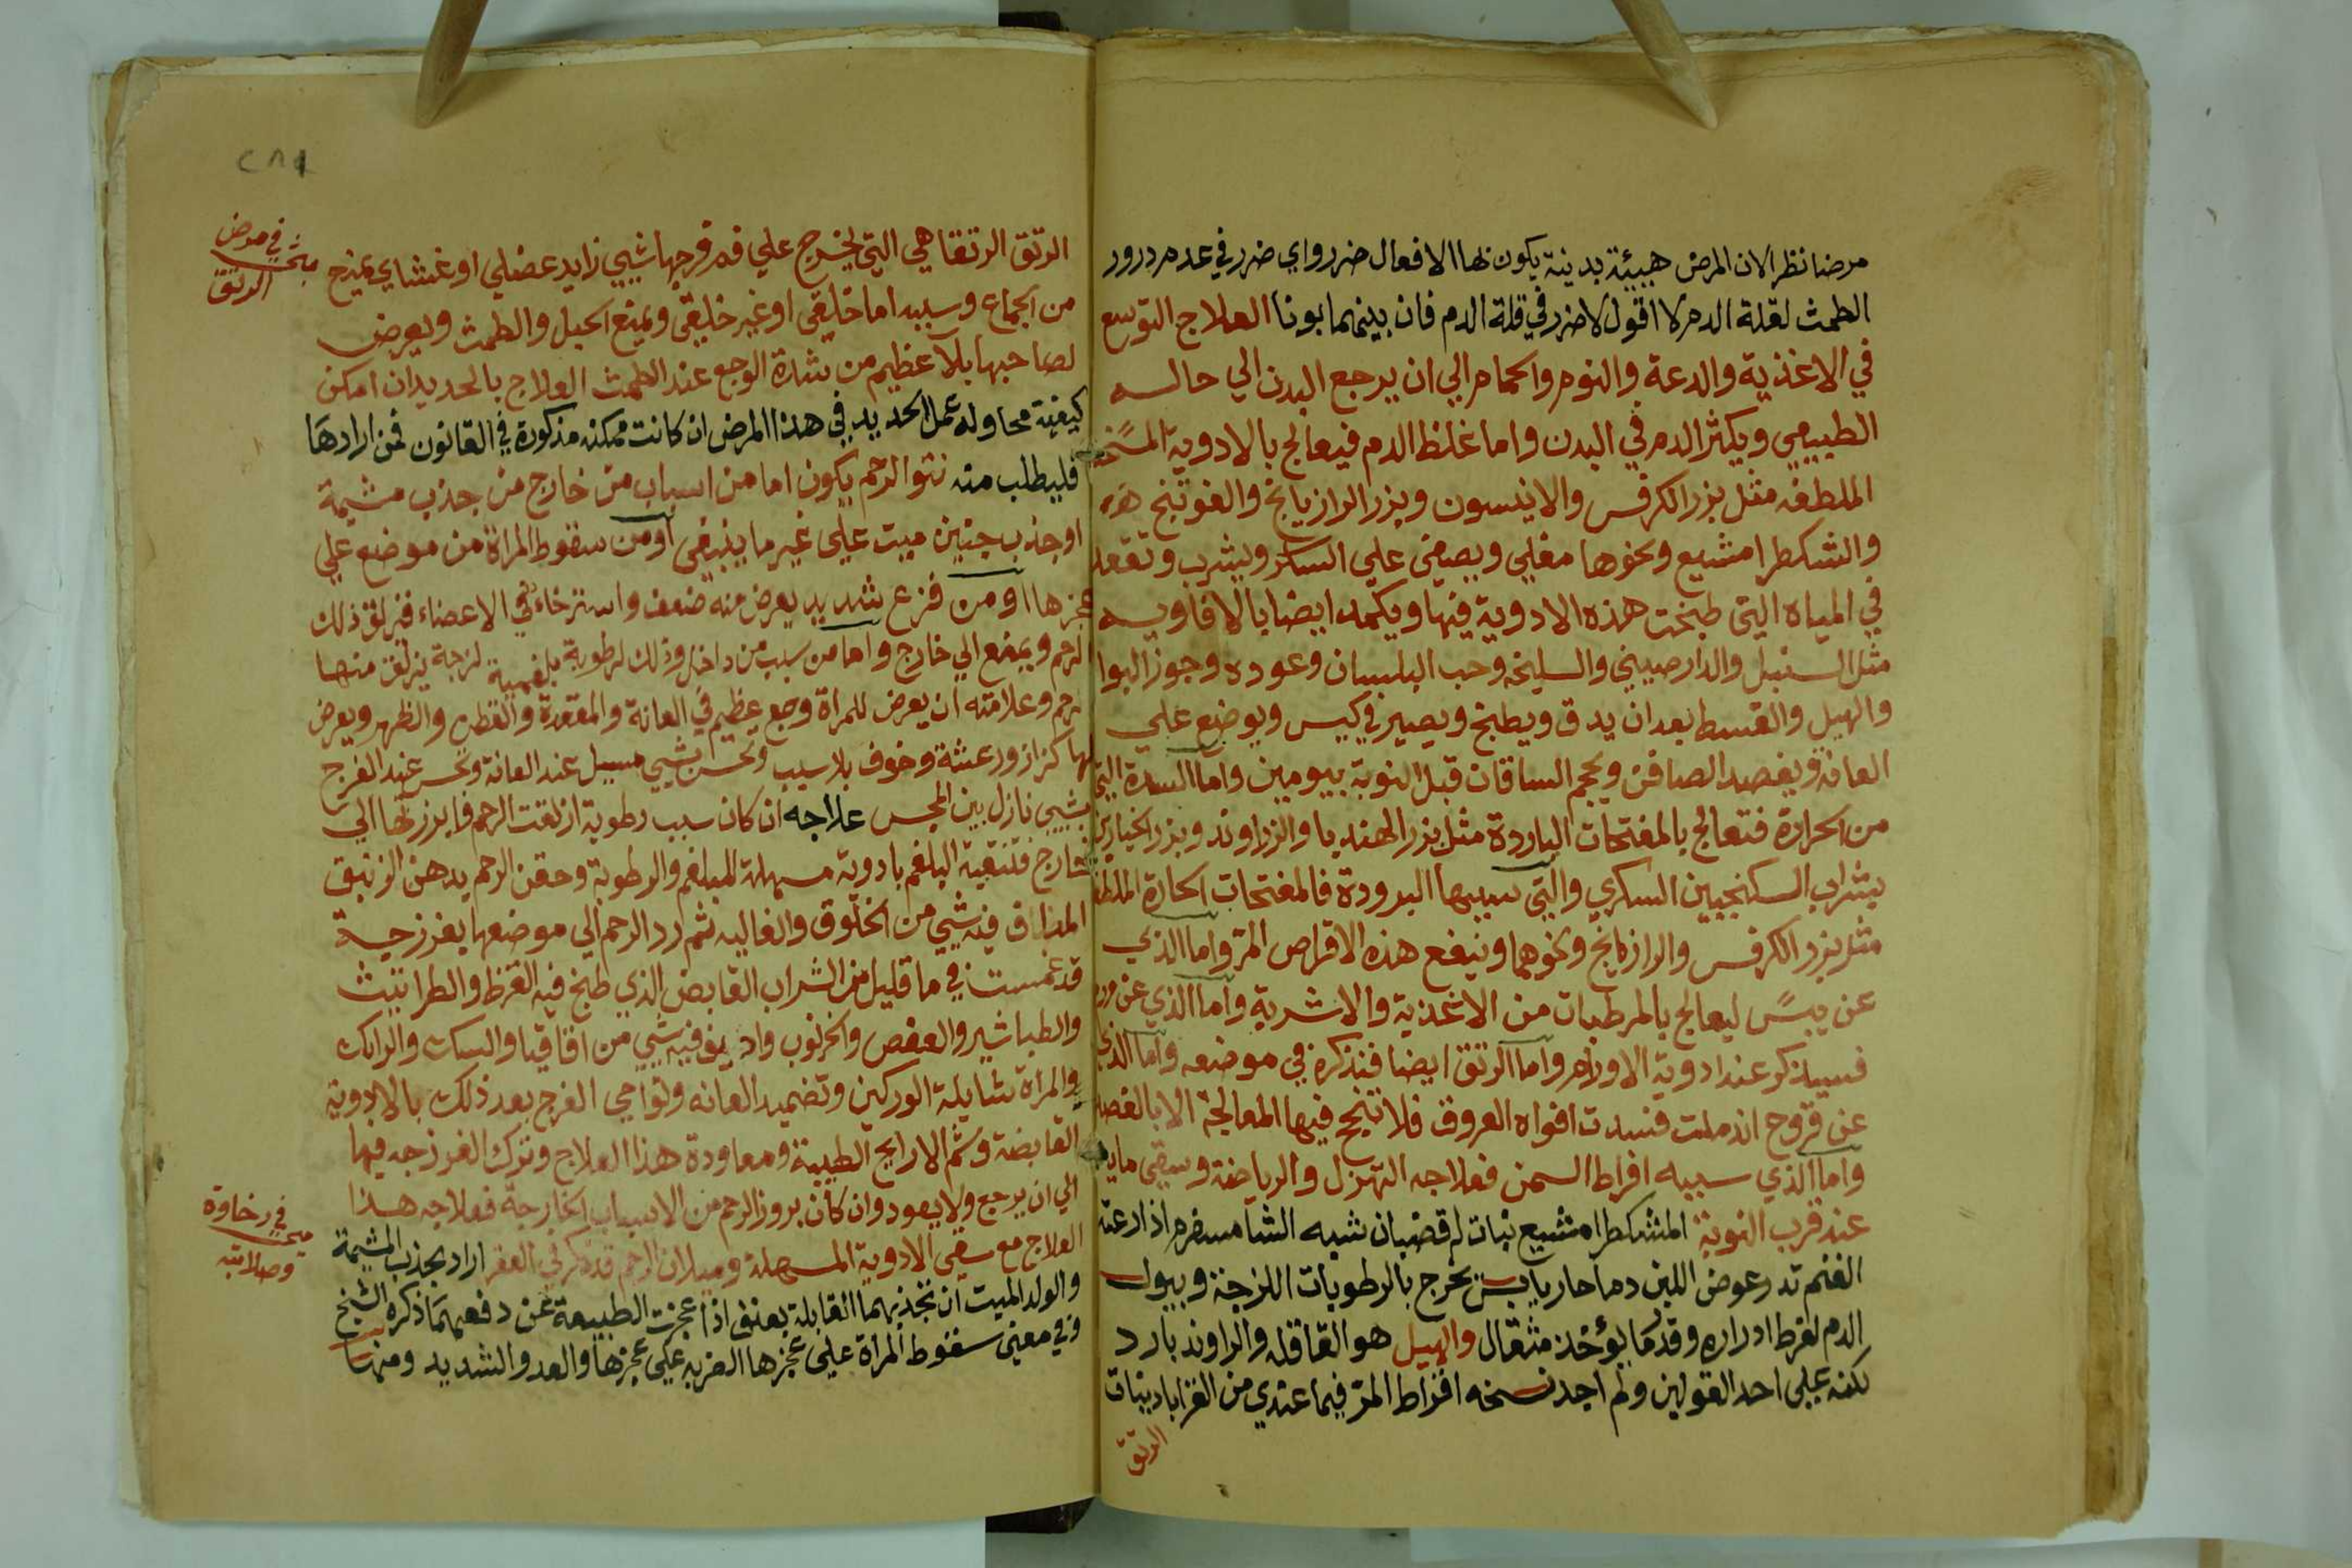 مرضا نظر الان المرض هيئة بدنية يكون لها الافعال ضرر واي ضرر في عدم درور
الطمث لقلة الدم لا اقول لا ضرر في قلة الدم فان بينهما بونا العلاج التوسع
في الاغذية والدعة والنوم والحمام الي ان يرجع البدن الي حاله
الطبيعي ويكثر الدم في البدن واما غلظ الدم فيعالج بالادوية المسخنة
الملطفه مثل بزر الكرفس والانيسون وبزر الرازيانج والفوتنج
والمشكطرامشيع ونحوها مغلي ويصفي علي السكر ويشرب وتقعد
في المياه التي طبخت هذه الادوية فيها ويكمد ايضا بالافاويه
مثل السنبل والدارصيني والسليخه وحب البلسان وعوده وجوز البوا
والهيل والقسط بعد ان يدق ويطبخ ويصير في كيس ويوضع علي
العانه ويفصد الصافن ويحجم الساقان قبل النوبة بيومين واما السدة التي
من الحرارة فتعالج بالمفتحات الباردة مثل بزر الهندبا والراوند وبزر الخيارين
بشراب السكنجبين السكري والتي سببها البرودة فالمفتحات الحارة الملطفة
مثل بزر الكرفس والرازيانج ونحوهما وينفع هذه الاقراص المر واما الذي
عن يبس ليعالج بالمرطبات من الاغذية والاشربة واما الذي عن ورم
فسيذكر عند ادوية الاورام واما الرتق ايضا فنذكره في موضعه واما الذي
عن قروح اندملت فسدت افواه العروق فلا تنجح فيها المعالجة الا بالفصد
واما الذي سببه افراط السمن فعلاجه التهزل والرياضة وسقي ما يدر
عند قرب النوبة المشكطرامشيع نبات له قضبان شبه الشامسفرم اذا رعته
الغنم تدر عوض اللبن دما حار يابس يخرج بالرطوبات اللزجة ويبول
الدم لفرط ادراره وقدر ما يؤخذ مثقال والهيل هو القاقله والراوند بارد
لكنه علي احد القولين ولم اجد نسخه اقراط المر فيما عندي من القراباديناة
الرتق
الرتق الرتقا هي التي يخرج علي فم فرجها شيي زايد عضلي او غشاي يمنع
في مرض
مبحث
الرتق
من الجماع وسببه اما خلقي او غير خلقي ويمنع الحبل والطمث ويعرض
لصاحبها بلآ عظيم من شدة الوجع عند الطمث العلاج بالحديد ان امكن
كيفية محاولة عمل الحديد في هذا المرض ان كانت ممكنه مذكورة في القانون فمن ارادها
فليطلب منه نتو الرحم يكون اما من اسباب من خارج من جذب مشيمة
او جذب جنين ميت علي غير ما ينبغي او من سقوط المراة من موضع علي
عجزها او من فزع شديد يعرض منه ضعف واسترخاء في الاعضاء فيزلق ذلك
الرحم ويدفع الي خارج واما من سبب من داخل وذلك لرطوبة بلغمية لزجة يزلق منها
الرحم وعلامته ان يعرض للمراة وجع عظيم في العانة والمقعدة والقطن والظهر ويعرض
لها كزاز ورعشة وخوف بلا سبب وتحس بشيي مسيل عند العانة وتحس عند الفرج
بشيي نازل لين المجس علاجه ان كان سبب رطوبة ازلقت الرحم فابرزتها الي
خارج فتنقية البلغم بادوية مسهلة للبلغم والرطوبة وحقن الرحم بدهن الزنبق
المذاف فيه شيي من الخلوق والغاليه ثم رد الرحم الي موضعها بفرزجة
قد غمست في ما قليل من الشراب القابض الذي طبخ فيه القرظ والطراثيث
والطباشير والعفص والخرنوب واديف فيه شيي من اقاقيا والسك والرامك
والمراة شايلة الوركين وتضميد العانه ونواحي الفرج بعد ذلك بالادوية
القابضة وشم الارايح الطيبة ومعاودة هذا العلاج وترك الفرزجه فيها
الي ان يرجع ولا يعود وان كان بروز الرحم من الاسباب الخارجة فعلاجه هذا
العلاج مع سقي الادوية المسهلة وميلان الرحم قد ذكر في العقر اراد بجذب المشيمة
في رخاوة
مبحث
وصلابته
والولد الميت ان تجذبهما القابلة بعنف اذا عجزت الطبيعة عن دفعهما ذكره الشيخ
وفي معني سقوط المرأة علي عجزها الضربه علي عجزها والعدو الشديد ومنها